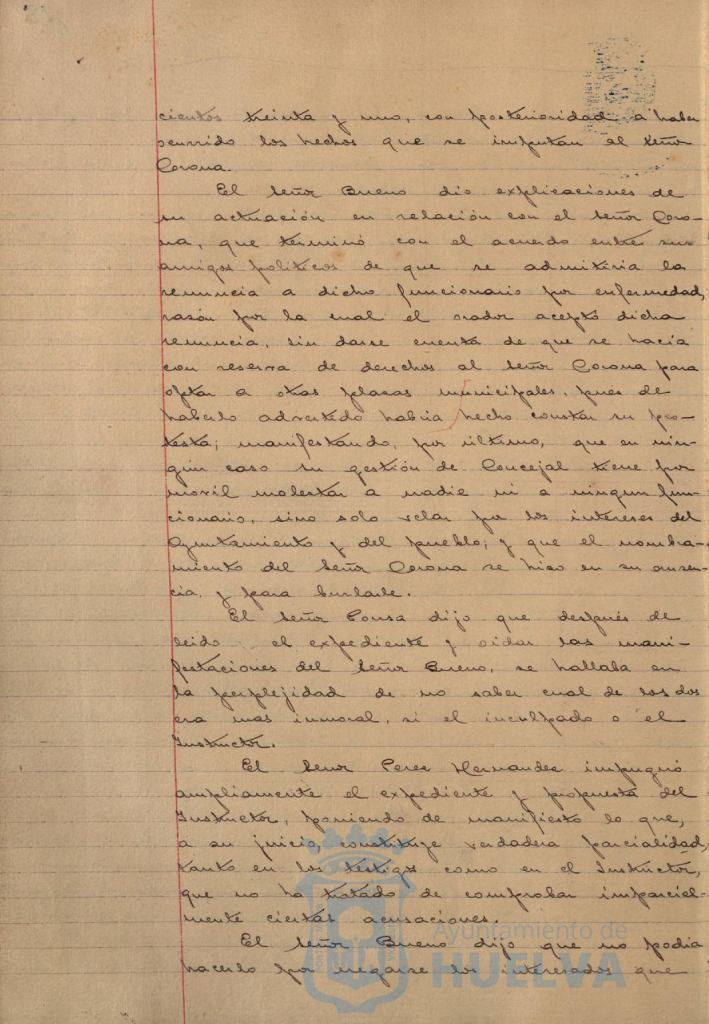 cientos treinta y uno, con posterioridad a haber
ocurrido los hechos que se imputan al señor
Corona.
El señor Bueno dio explicaciones de
su actuación en relación con el señor Coro-
na, que terminó con el acuerdo entre sus
amigos políticos de que se admitiria la
renuncia a dicho funcionario por enfermedad,
rasón por la cual el orador aceptó dicha
renuncia, sin darse cuenta de que se hacia
con reserva de derechos al señor Corona para
optar a otras plazas municipales, pués de
haberlo advertido habria hecho constar su pro-
testa; manifestando, por último, que en nin-
gún caso su gestión de Concejal tiene por
movil molestar a nadie ni a ningun fun-
cionario, sino solo velar por los intereses del
Ayuntamiento y del pueblo; y que el nombra-
miento del señor Corona se hizo en su ausen-
cia y para burlarle.
El señor Pousa dijo que después de
leido el expediente y oidas las mani-
festaciones del señor Bueno, se hallaba en
la perplejidad de no saber cual de los dos
era mas inmoral, si el inculpado o el
Instructor.
El señor Perez Hernandez impugnó
ampliamente el expediente y propuesta del
Instructor, poniendo de manifiesto lo que,
a su juicio, constituye verdadera parcialidad,
tanto en los testigos como en el Instructor,
que no ha tratado de comprobar imparcial-
mente ciertas acusaciones.
El señor Bueno dijo que no podia
hacerlo por negarse los interesados que
Ayuntamiento de
HUELVA